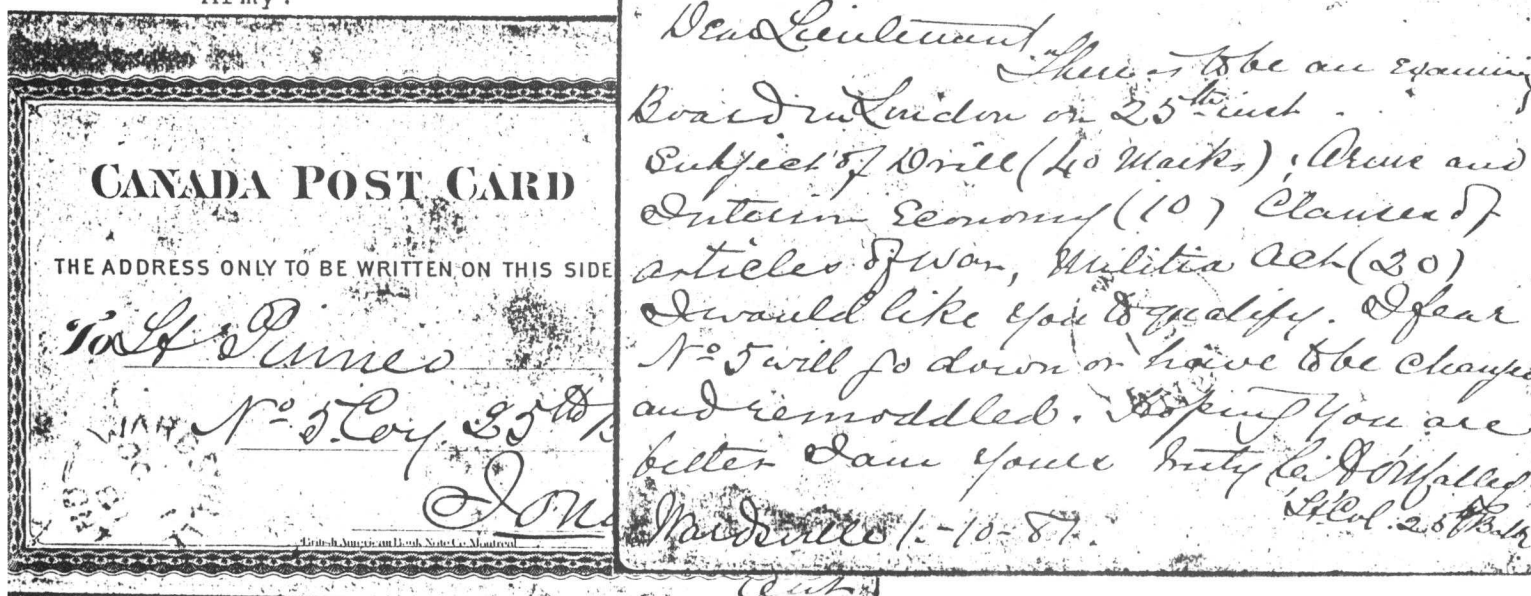 Army.
CANADA POST CARD
THE ADDRESS ONLY TO BE WRITTEN ON THIS SIDE
To Lt Pinneo
No 5. Coy. 25th B
Iona
British American Bank Note Co. Montreal
Ont
Dear Lieutenant
There is to be an examining
Board in London on 25th inst.
Subject of Drill (40 Marks), Arms and
Interior Economy (10) Clauses of
articles of war, Militia Act (20)
I would like you to qualify. I fear
No 5 will go down or have to be changed
and remoddled. Hoping you are
better I am yours truly
Lt Col. 25th Batt
Wardsville 1-10-81.